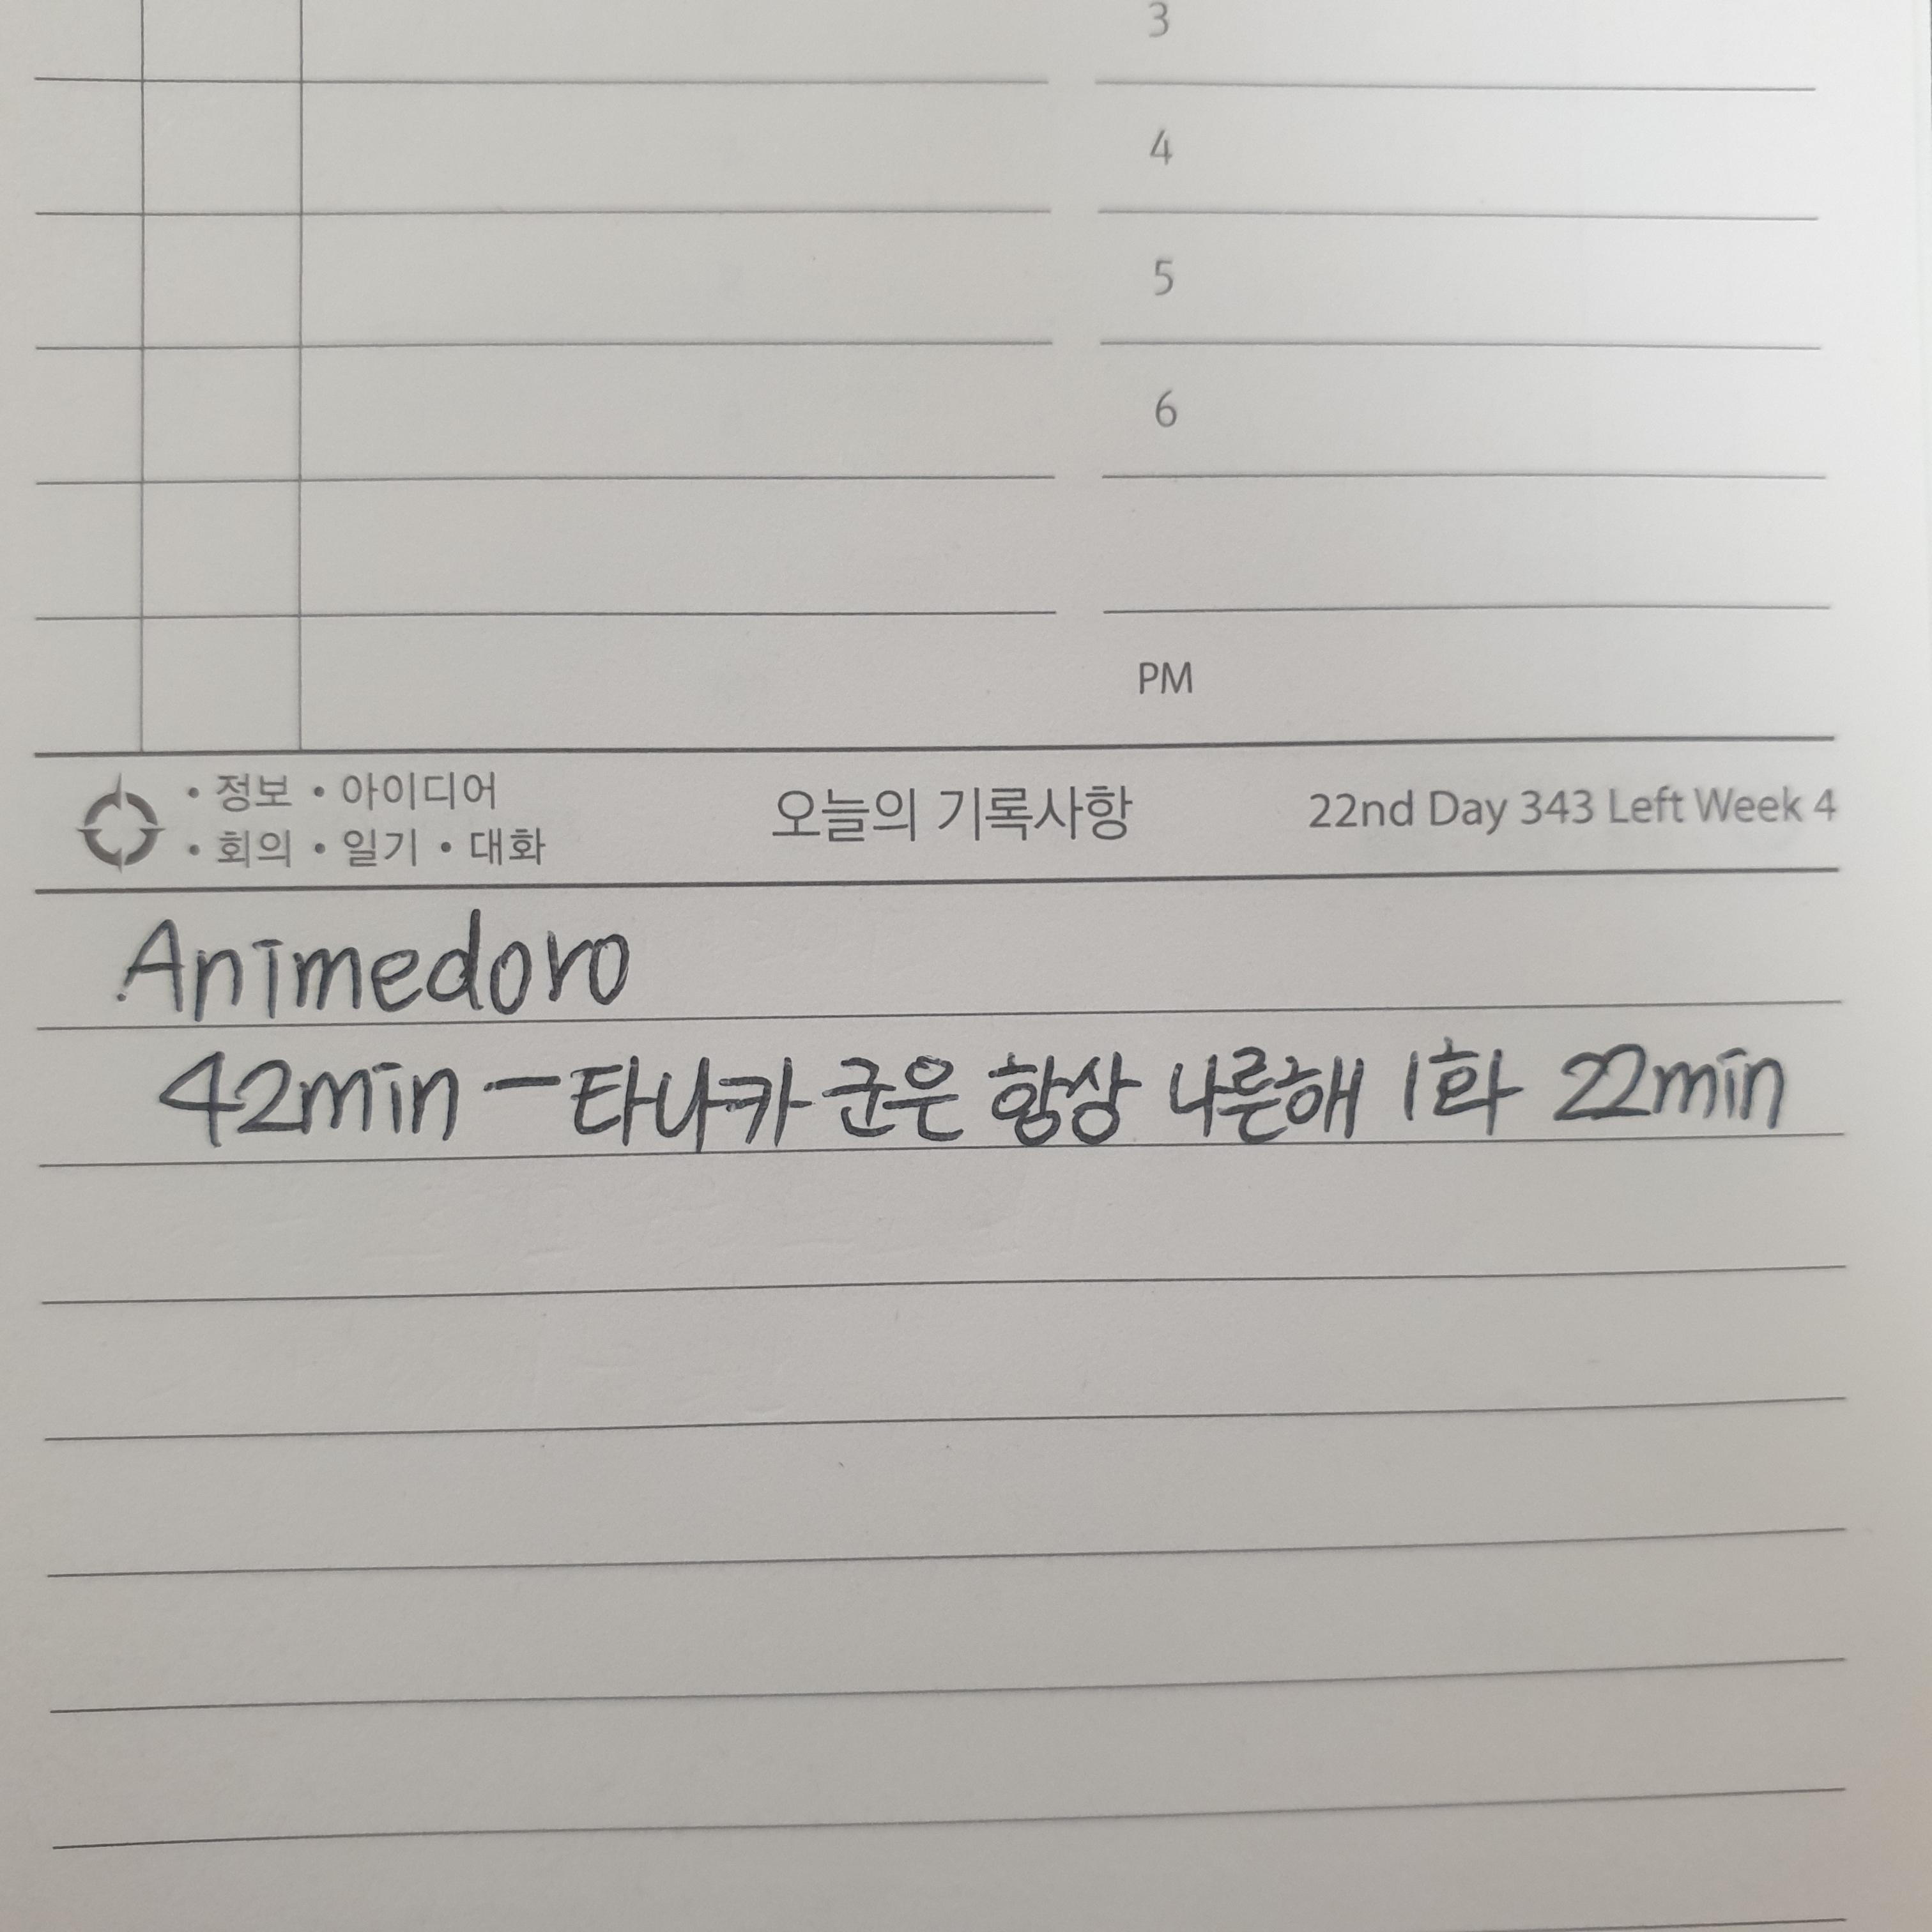 3
4
5
6
PM
• 정보 • 아이디어
• 회의 • 일기 • 대화
오늘의 기록사항
22nd Day 343 Left Week 4
Animedoro
42min - 타나카 군은 항상 나른해 1화 22min